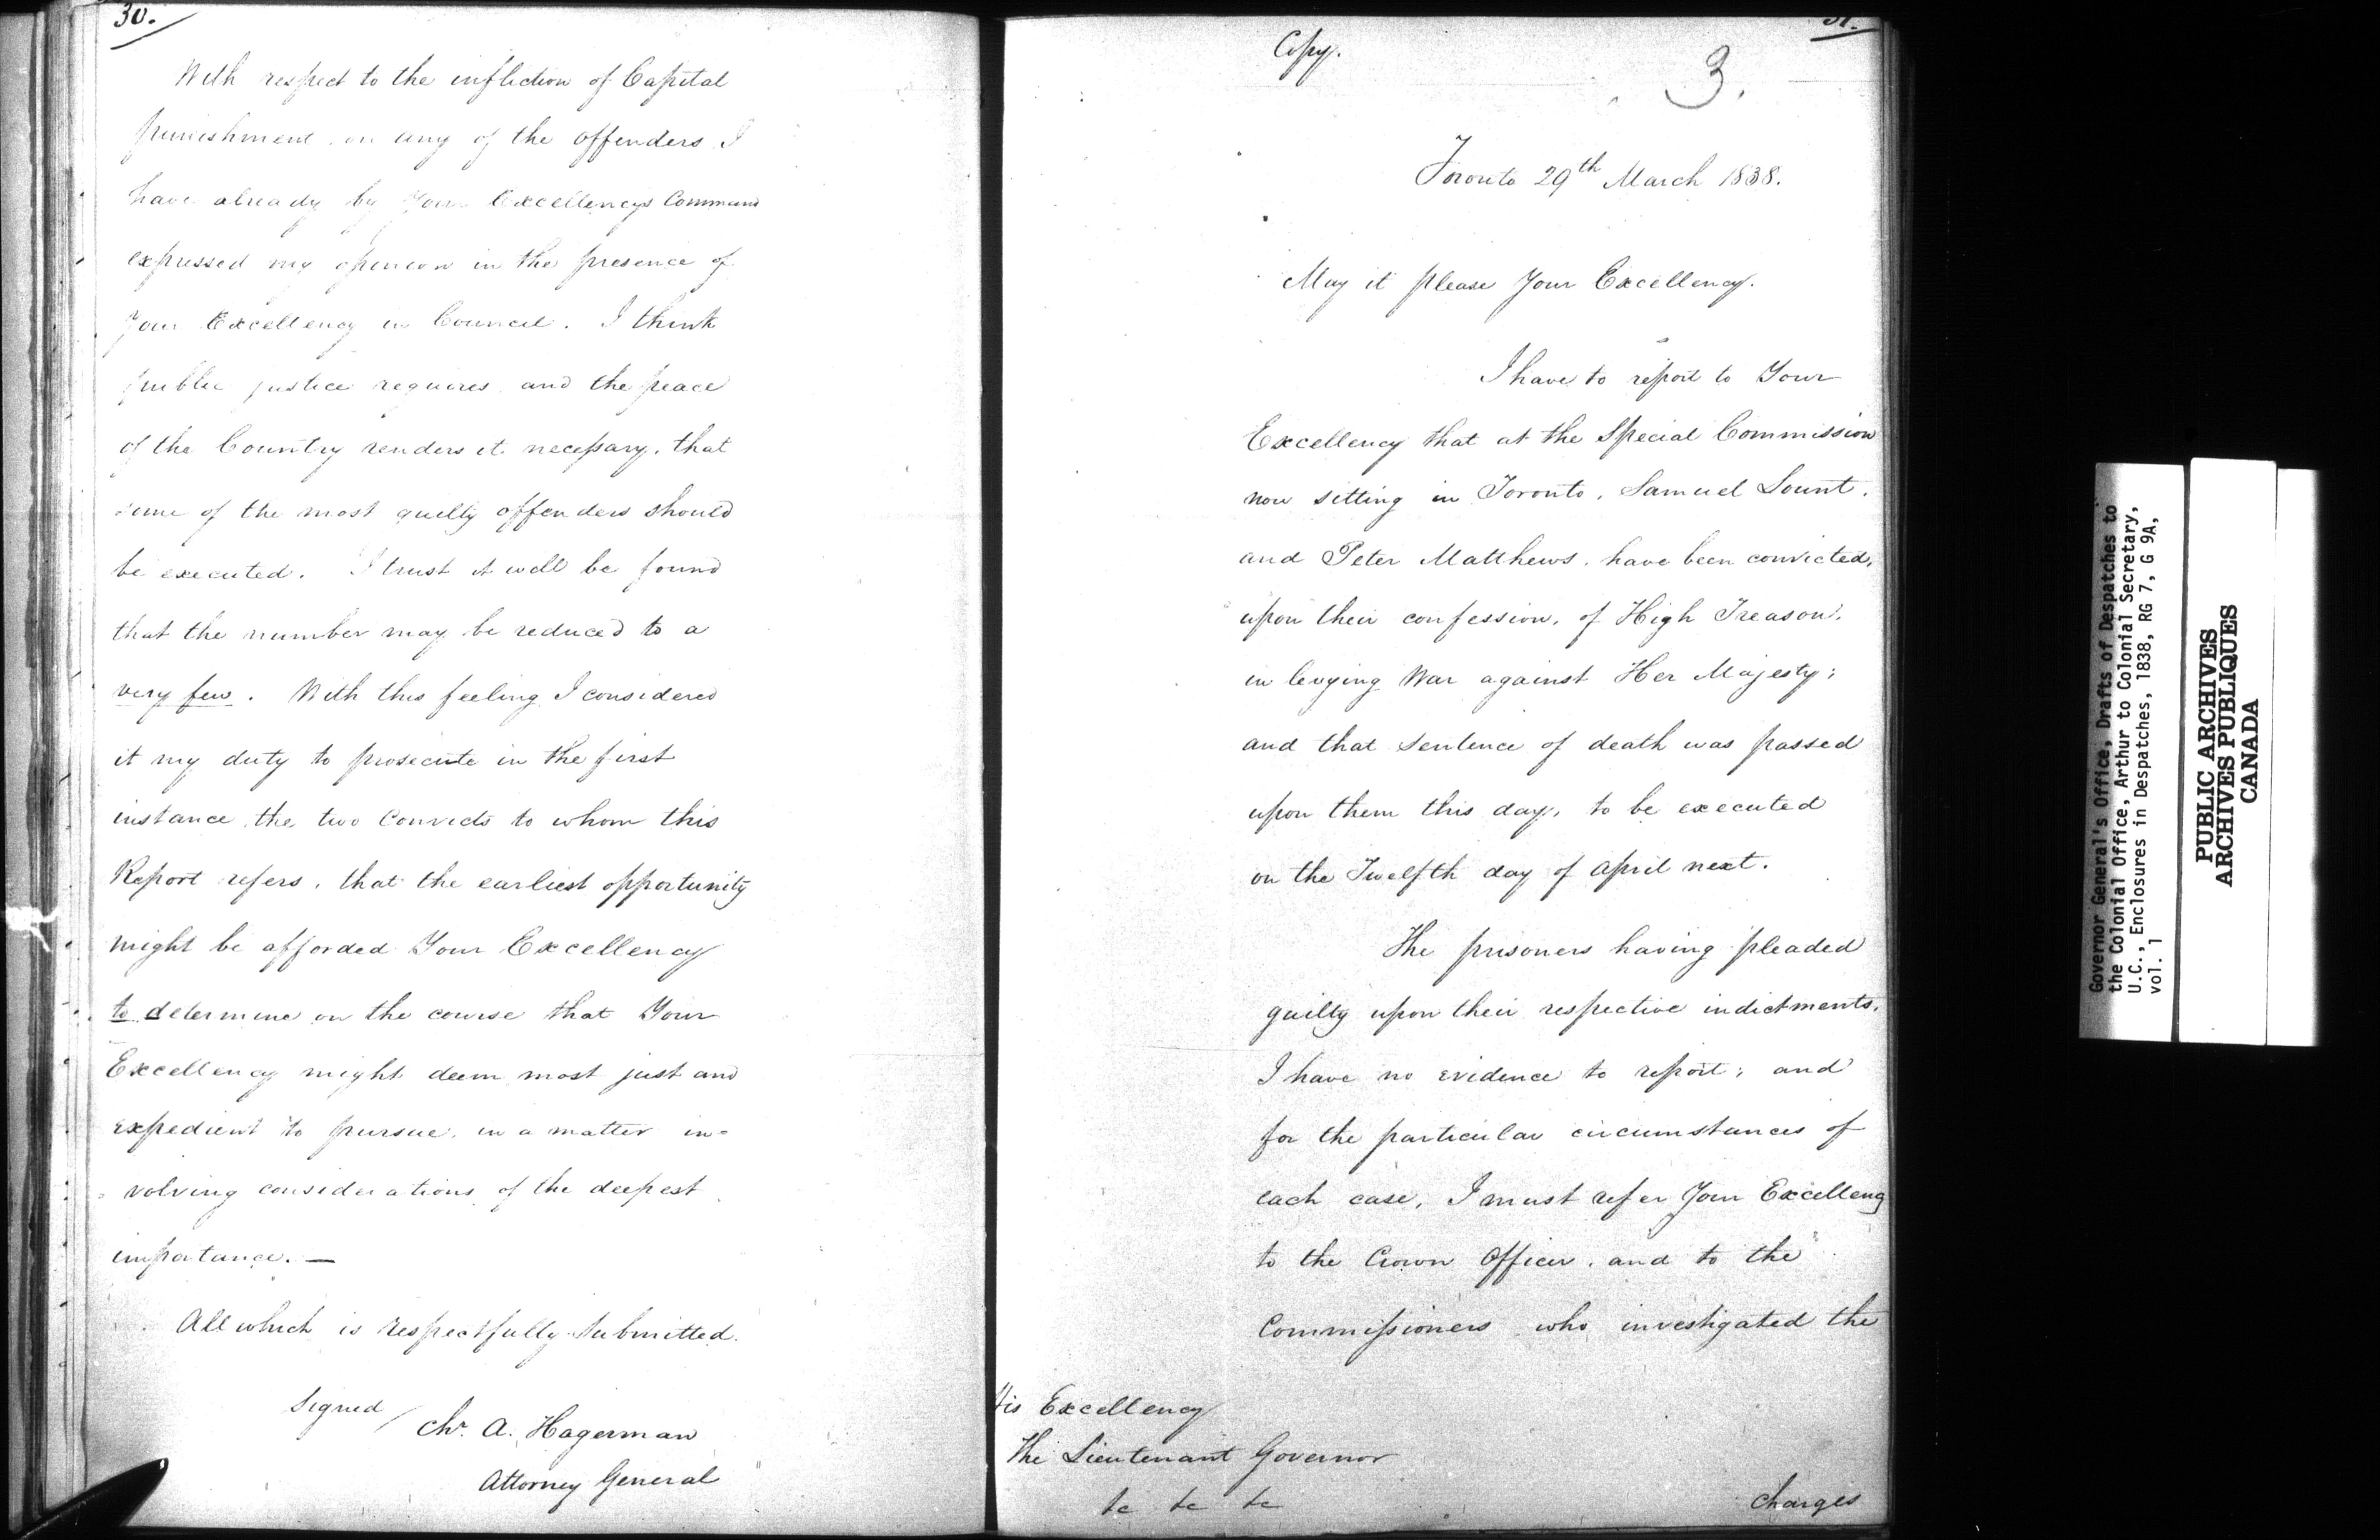 30.
With respect to the infliction of Capital
punishment on any of the offenders I
have already by Your Excellencys Command
expressed my opinion in the presence of
Your Excellency in Council. I think
public justice requires and the peace
of the Country renders it necessary, that
some of the most guilty offenders should
be executed. I trust it will be found
that the number may be reduced to a
very few. With this feeling I considered
it my duty to prosecute in the first
instance the two Convicts to whom this
Report refers, that the earliest opportunity
might be afforded Your Excellency
to determine on the course that Your
Excellency might deem most just and
expedient to pursue, in a matter in=
=volving considerations of the deepest
importance. —
All which is respectfully submitted.
Signed / Chr. A. Hagerman
Attorney General
31.
Copy.
3.
Toronto 29th March 1838.
May it please Your Excellency.
I have to report to Your
Excellency that at the Special Commission
now sitting in Toronto, Samuel Lount,
and Peter Matthews, have been convicted,
upon their confession, of High Treason,
in levying War against Her Majesty;
and that sentence of death was passed
upon them this day, to be executed
on the Twelfth day of April next.
The prisoners having pleaded
guilty upon their respective indictments,
I have no evidence to report; and
for the particular circumstances of
each case, I must refer Your Excellency
to the Crown Officer, and to the
Commissioners who investigated the
His Excellency
The Lieutenant Governor
&c &c &c
charges
Governor General's Office, Drafts of Despatches to
the Colonial Office, Arthur to Colonial Secretary,
U.C., Enclosures in Despatches, 1838, RG 7, G 9A,
vol. 1
PUBLIC ARCHIVES
ARCHIVES PUBLIQUES
CANADA